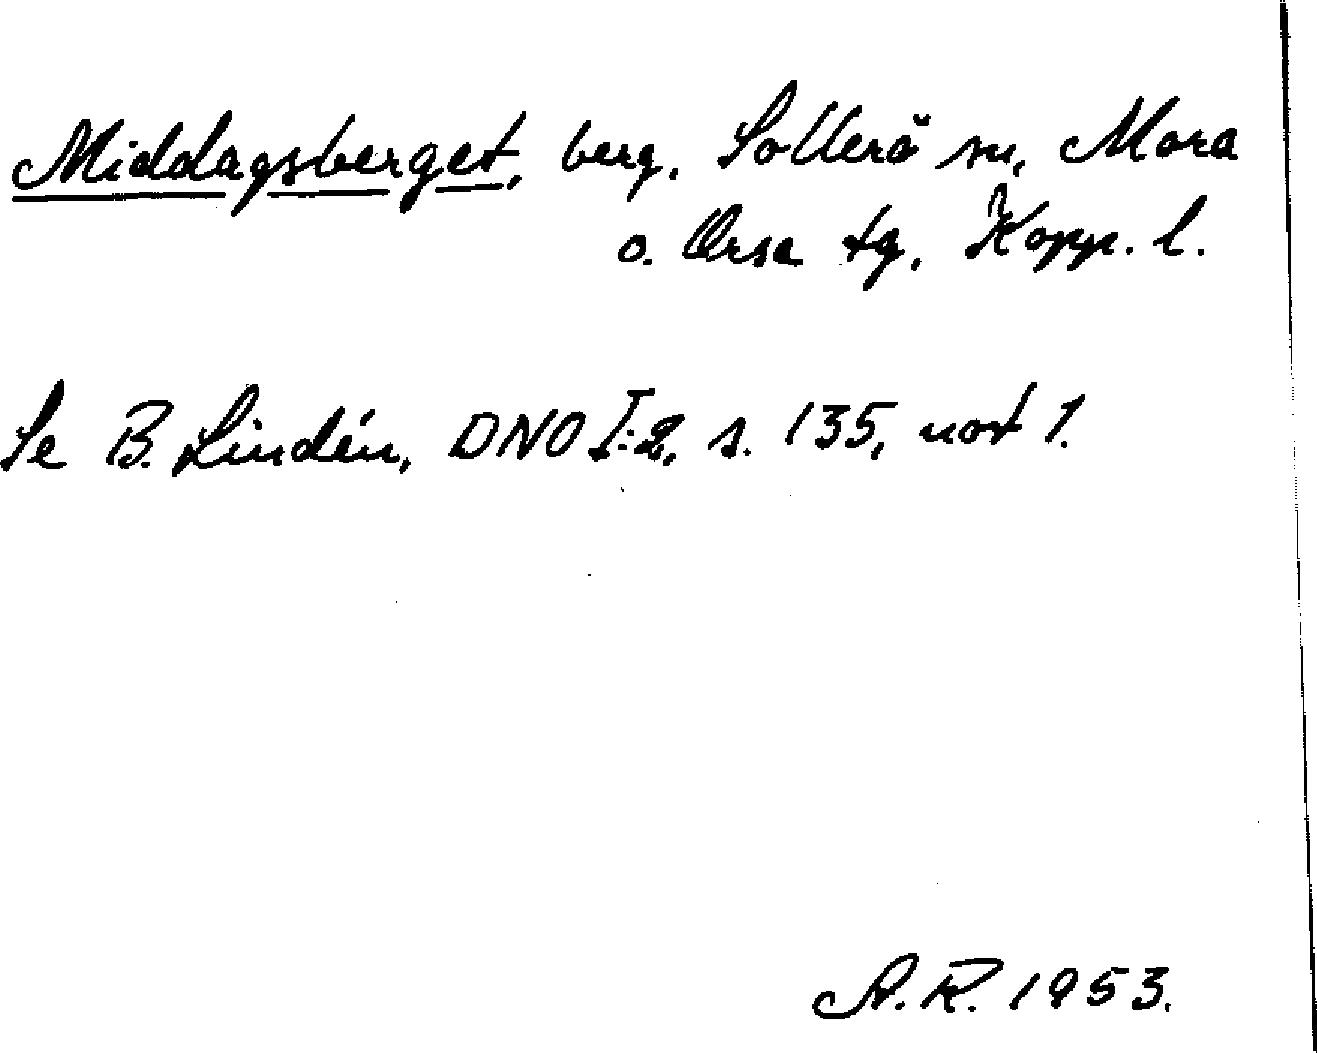 Middagsberget, berg, Sollerö sn, Mora
o. Orsa tg, Kopp. l.
Se B. Lindén, DNO I:2, s. 135, not 1.
A.R. 1953.